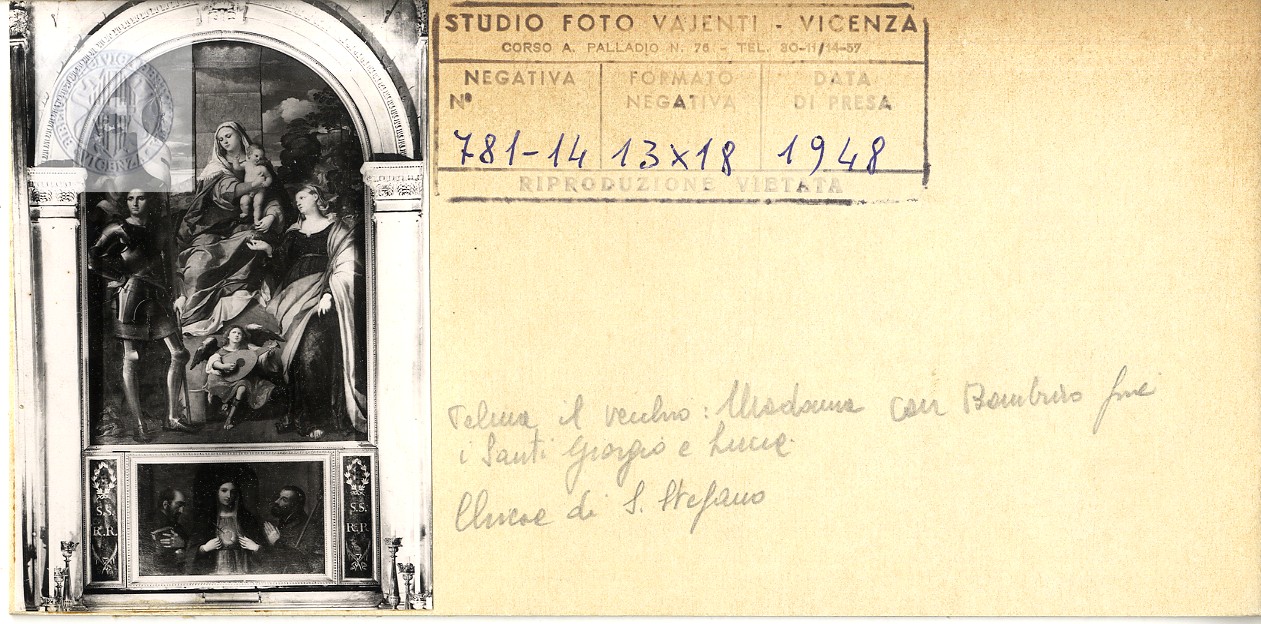 STUDIO FOTO VAJENTI - VICENZA
CORSO A. PALLADIO N. 76 - TEL. 30-11/14-57
NEGATIVA Nº
FORMATO NEGATIVA
DATA DI PRESA
781-14
13x18
1948
RIPRODUZIONE VIETATA
Palma il vecchio: Madonna con Bambino fra
i Santi Giorgio e Lucia
Chiesa di S. Stefano
S.S.
R.R.
S.S.
R.R.